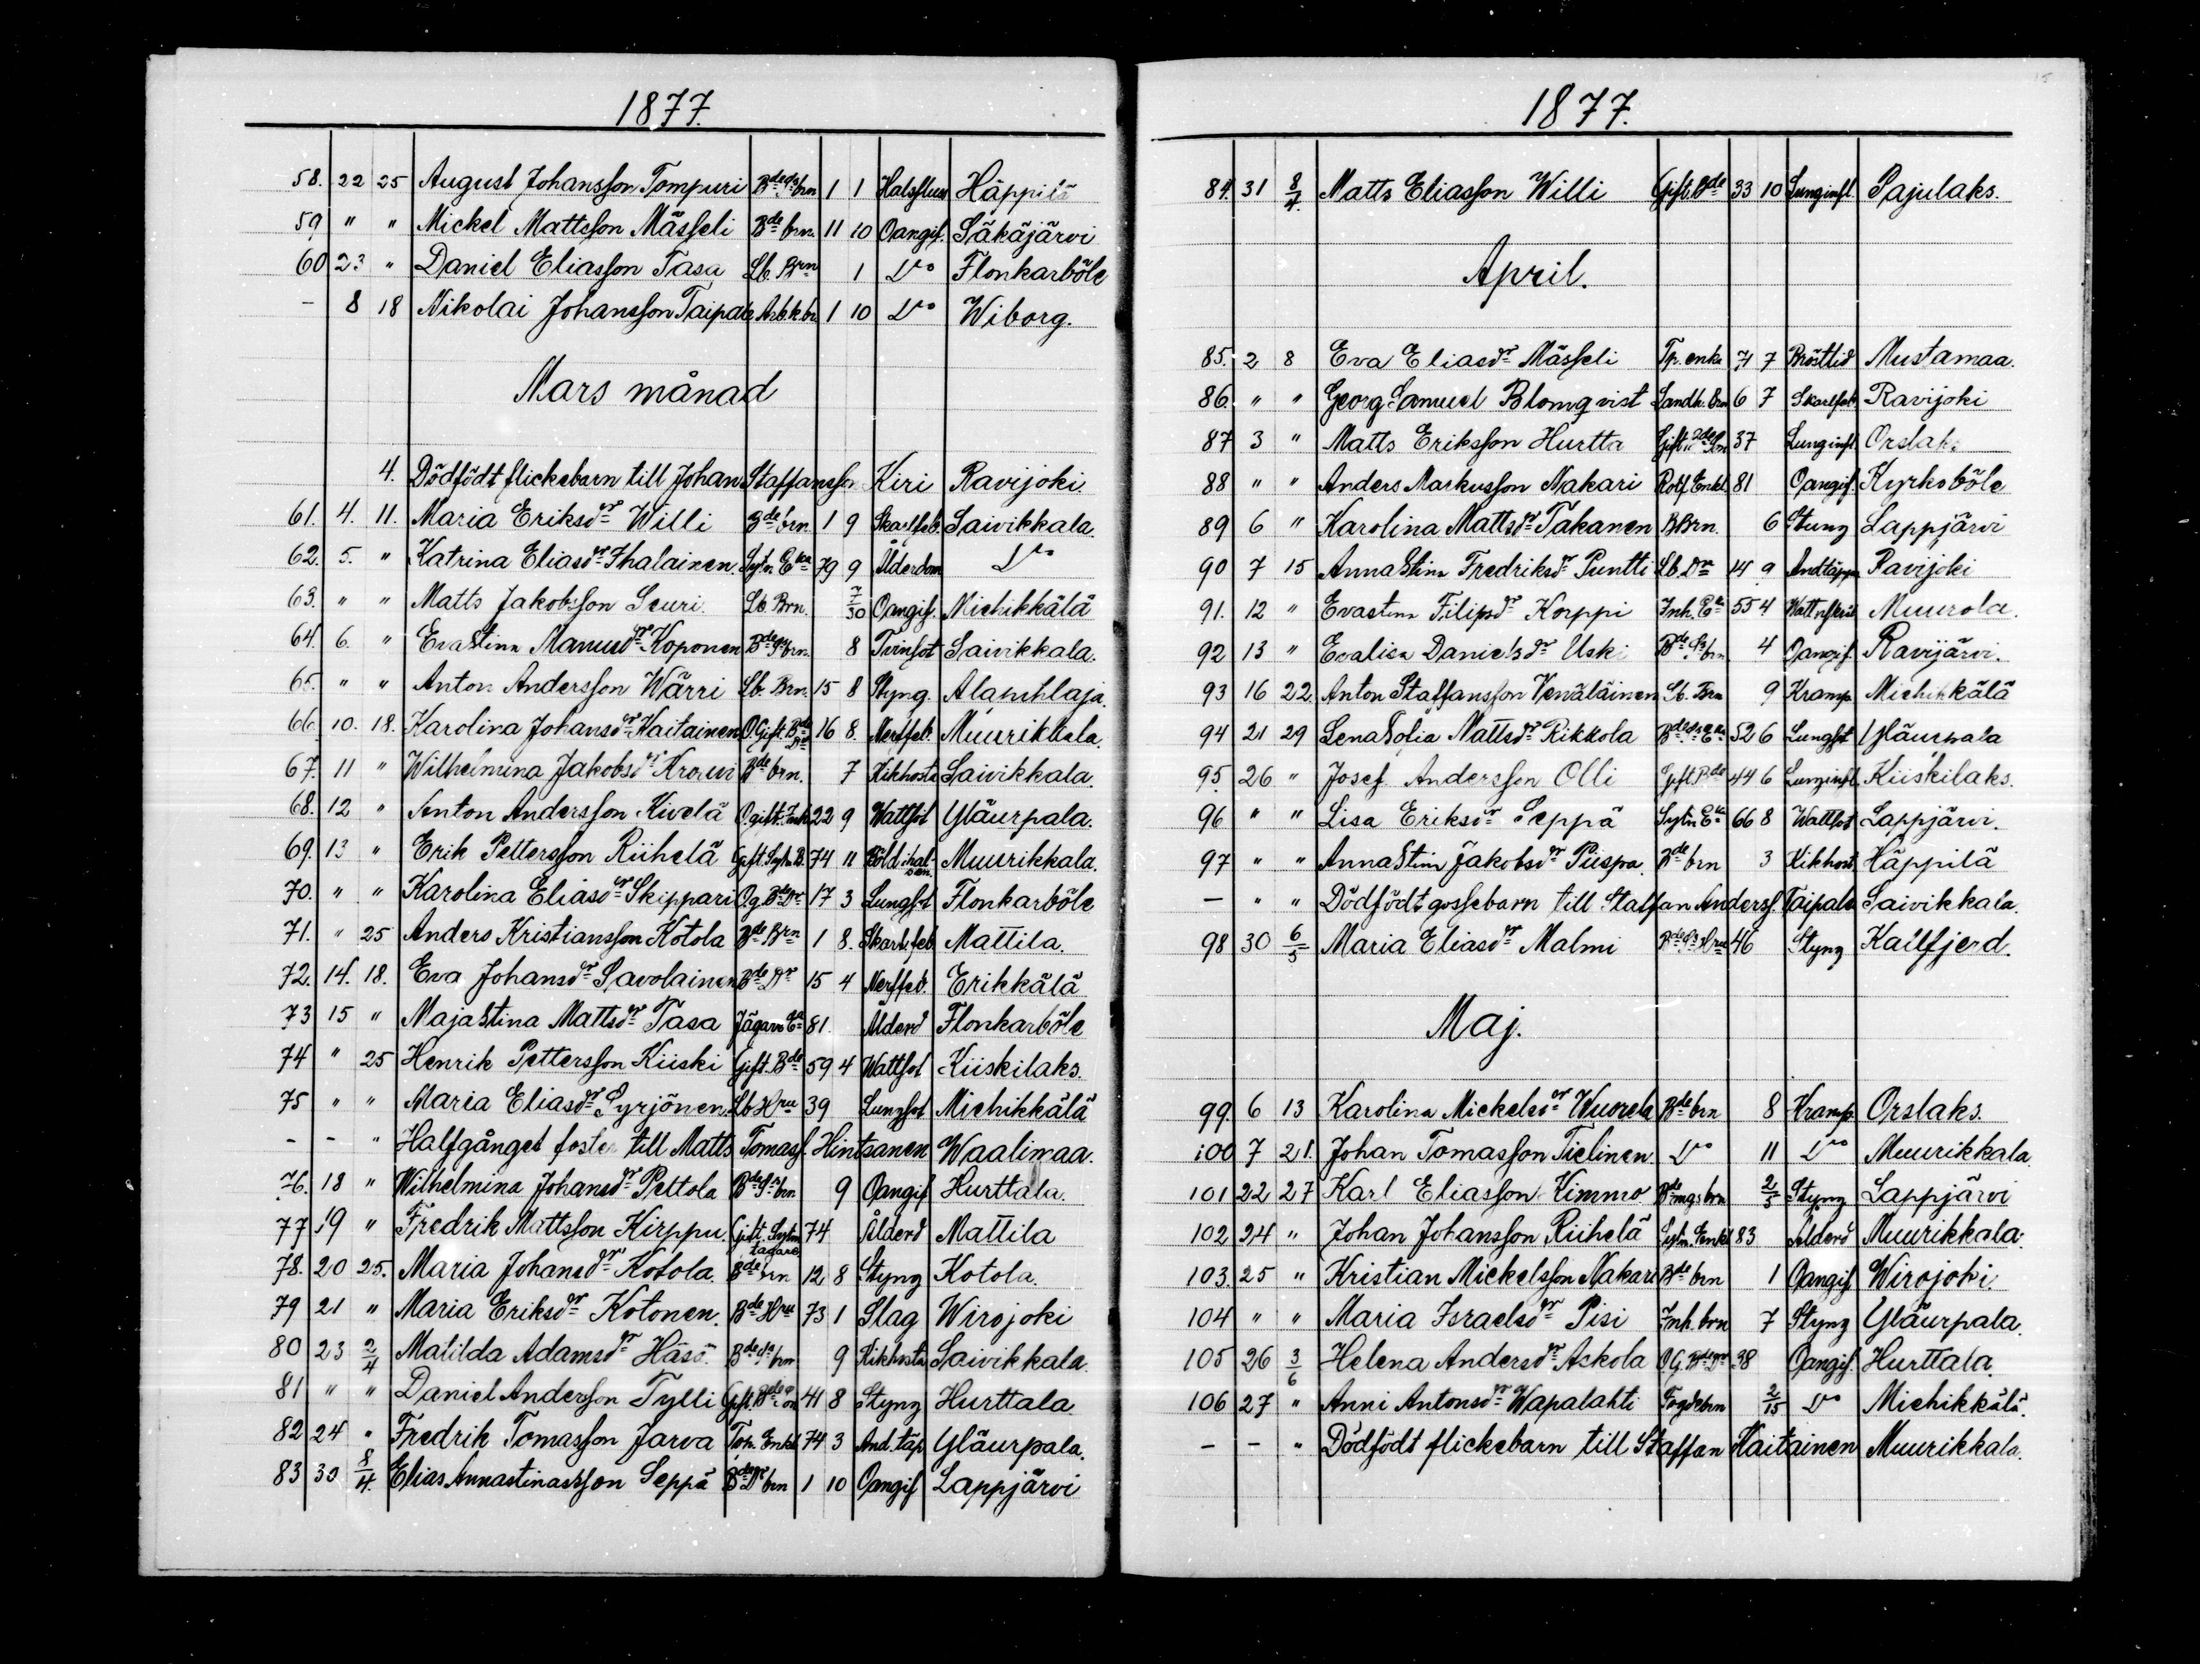 1877.
58. 22 25 August Johansson Tompuri Bde ds brn 1 1 Halsfluss Häppilä
59 " " Mickel Mattsson Mässeli Bde brn. 11 10 Oangif. Säkäjärvi
60 23 " Daniel Eliasson Tasa Lb. Brn 1 Do Flonkarböle
- 8 18 Nikolai Johansson Taipale Arb.k.br. 1 10 Do Wiborg.
Mars månad
4. Dödfödt flickebarn till Johan Staffansson Kiri Ravijoki.
61. 4. 11. Maria Eriksdr Willi Bde brn. 1 9 Skarlfeb. Saivikkala.
62. 5. " Katrina Eliasdr Ihalainen. Sytn. Eka 79 9 Ålderdom Do
63. " " Matts Jakobsson Suuri. Lb. Brn. 7/30 Oangif. Michikkälä
64. 6. " EvaStina Manusdr Koponen Bde Sr brn. 8 Tvinsot Saivikkala.
65. " " Anton Andersson Wärri Lb. Brn. 15 8 Styng. Alapihlaja.
66 10. 18. Karolina Johansdr Haitainen O.Gift. Bde Dr 16 8. Nerffeb. Muurikkala.
67. 11 " Wilhelmina Jakobsdr Krouvi Bde brn. 7 Kikhosta Saivikkala.
68. 12 " Anton Andersson Kivelä O.gift. Inh. 22 9 Wattsot Yläurpala.
69. 13 " Erik Pettersson Riihelä Gift. Sytn. B. 74 11 Böld i halsen. Muurikkala.
70. " " Karolina Eliasdr Skippari Og. Bde Dr 17 3 Lungsot Flonkarböle
71. " 25 Anders Kristiansson Kotola Bde Brn 1 8. Skarl.feb. Mattila.
72. 14. 18. Eva Johansdr Savolainen Bde Dr 15 4 Nerffeb. Erikkälä
73 15 " MajaStina Mattsdr Tasa Jägare Ea 81. Ålderd Flonkarböle
74 " 25 Henrik Pettersson Kiiski Gift. Bde 59 4 Wattsot Kiiskilaks.
75 " " Maria Eliasdr Syrjönen Lb Hru 39 Lungsot Michikkälä
- - " Halfgånget foster till Matts Tomass. Hintsanen Waalimaa.
76. 18 " Wilhelmina Johansdr Pettola Bde Sr brn 9 Oangif Hurttala.
77 19 " Fredrik Mattsson Kirppu. Gift. Sytn tagare 74 Ålderd Mattila
78. 20 25. Maria Johansdr Kotola. Bde brn 12 8 Styng Kotola.
79 21 " Maria Eriksdr Kotonen. Bde Hru 73 1 Slag Wirojoki
80 23 2/4 Matilda Adamsdr Häsä. Bde Sr brn 9 Kikhosta Saivikkala.
81 " " Daniel Andersson Tylli Gift. Bde 41 8 Styng Hurttala.
82 24 " Fredrik Tomasson Jarva Enkl 74 3 And. täp Yläurpala.
83 30 8/4. Elias Annastinasson Seppä Bde Dr brn 1 10 Oangif Lappjärvi
1877.
84. 31 8/4. Matts Eliasson Willi Gift. Bde 33 10 Lunginfl. Pajulaks.
April.
85. 2 8 Eva Eliasdr Mässeli Tp. enka 71 7 Bröstlid Mustamaa.
86. " " Georg Samuel Blomqvist Landh. Brn 6 7 Skarlfeb. Ravijoki
87 3 " Matts Eriksson Hurtta Gift. Bde Son 37 Lunginfl. Orslaks
88 " " Anders Markusson Nakari Rotf. Enkl. 81 Oangif. Kyrkoböle
89 6 " Karolina Mattsdr Takanen B Brn. 6 Stung Lappjärvi
90 7 15 AnnaStina Fredriksdr Puntti Lb. Dr 14 9 Andtäppa Ravijoki
91. 12 " Evastina Filipsdr Korppi Inh. Ea 55 4 Muurola.
92 13 " Evalisa Danielsdr Uski Bde Ss brn. 4 Oangif. Ravijärvi.
93 16 22 Anton Staffansson Venäläinen Lb. Brn 9 Kramp. Michikkälä
94 21 29 LenaSofia Mattsdr Rikkola Bde Ss Ea 52 6 Lungsot Yläurpala
95. 26 " Josef Andersson Olli Gift. Bde 44 6 Lunginfl. Kiiskilaks.
96 " " Lisa Eriksdr Seppä Sytn Ea 66 8 Wattsot Lappjärvi.
97 " " AnnaStina Jakobsdr Piispa. Bde brn 3 Kikhost Häppilä
- " " Dödfödt gossebarn till Staffan Anderss. Taipale Saivikkala.
98 30 6/5 Maria Eliasdr Malmi Bde Ss Hru 46 Styng Kailfjerd.
Maj.
99. 6 13 Karolina Mickelsdr Wuorela Bde brn 8 Kramp. Orslaks.
100 7 21. Johan Tomasson Tielinen. Do 11 Do Muurikkala.
101 22 27 Karl Eliasson Kimmo Bde mgs brn 2/5 Styng Lappjärvi
102 24 " Johan Johansson Riihelä Sytn. Enkl 83 Ålderd Muurikkala.
103. 25 " Kristian Mickelsson Nakari Bde brn 1 Oangif. Wirojoki.
104 " " Maria Israelsdr Pisi Inh. brn 7 Styng Yläurpala.
105 26 3/6 Helena Andersdr Askola OG. Bde Dr 38 Oangif. Hurttala.
106 27 " Anni Antonsdr Wapalahti Fogde brn 2/15 Do Michikkälä.
- - " Dödfödt flickebarn till Staffan Haitainen Muurikkala.